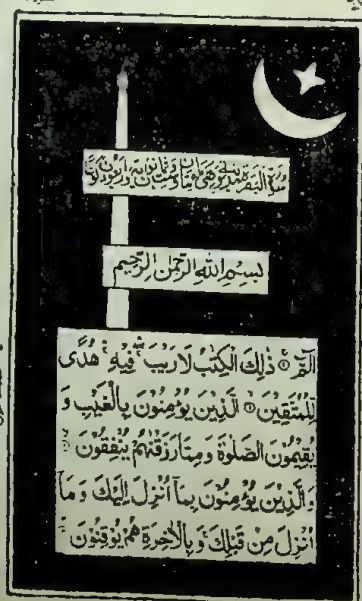 سورة البقرة مدنية وهي مائتان وثمانون آية وأربعون ركوعا
بِسْمِ اللهِ الرَّحْمٰنِ الرَّحِيْمِ
الٓمّٓ ۚ ذٰلِكَ الْكِتٰبُ لَا رَيْبَ ۛ فِيْهِ ۛ هُدًى
لِّلْمُتَّقِيْنَ ۙ الَّذِيْنَ يُؤْمِنُوْنَ بِالْغَيْبِ وَ
يُقِيْمُوْنَ الصَّلٰوةَ وَمِمَّا رَزَقْنٰهُمْ يُنْفِقُوْنَ ۙ
وَالَّذِيْنَ يُؤْمِنُوْنَ بِمَآ اُنْزِلَ اِلَيْكَ وَمَآ
اُنْزِلَ مِنْ قَبْلِكَ ۚ وَبِالْاٰخِرَةِ هُمْ يُوْقِنُوْنَ ؕ